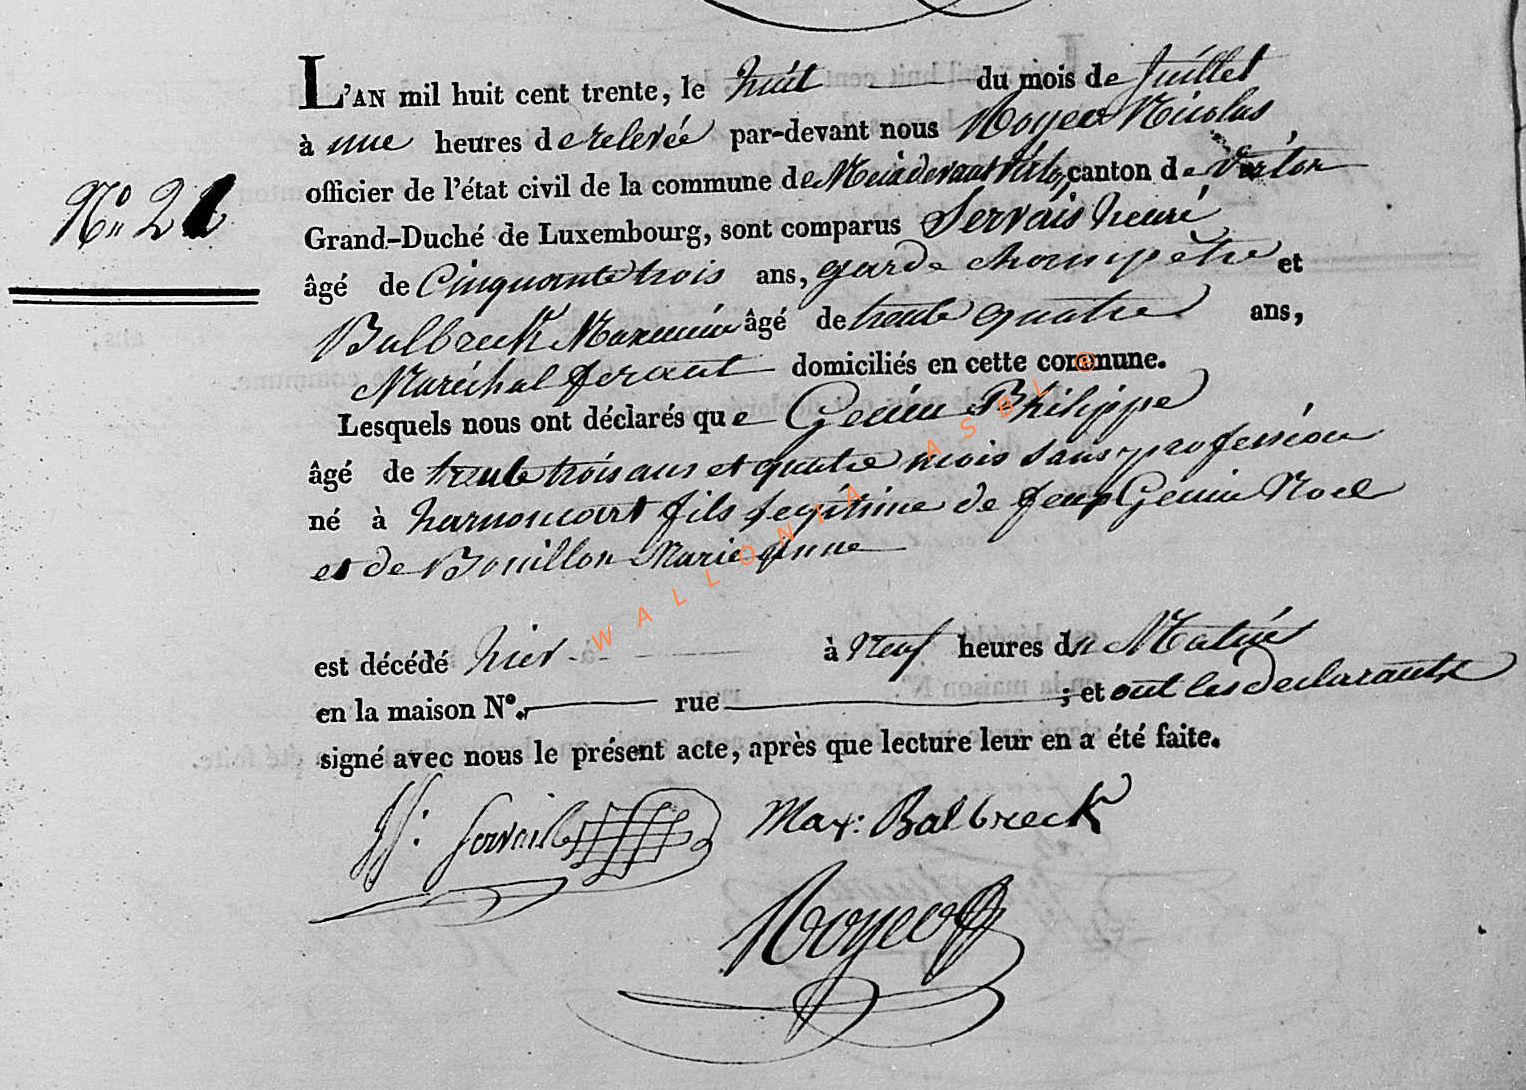 L'AN mil huit cent trente, le huit du mois de Juillet
à une heures de relevée par-devant nous Noyer Nicolas
officier de l'état civil de la commune de Meixdevant Virton, canton de Virton
Nº 21
Grand-Duché de Luxembourg, sont comparus Servais henri
âgé de Cinquante trois ans, garde champêtre et
Balbreck Maximin âgé de trente quatre ans,
Maréchal ferant domiciliés en cette commune.
Lesquels nous ont déclarés que Genin Philippe
âgé de trente trois ans et quatre mois sans profession
né à harnoncourt fils legitime de feux Genin Noel
et de Bouillon Marie anne
est décédé hier à à neuf heures du Matin
en la maison Nº. rue ; et ont les declarants
signé avec nous le présent acte, après que lecture leur en a été faite.
H: Servais Max: Balbreck
Noyer
WALLONIA ASBL ©